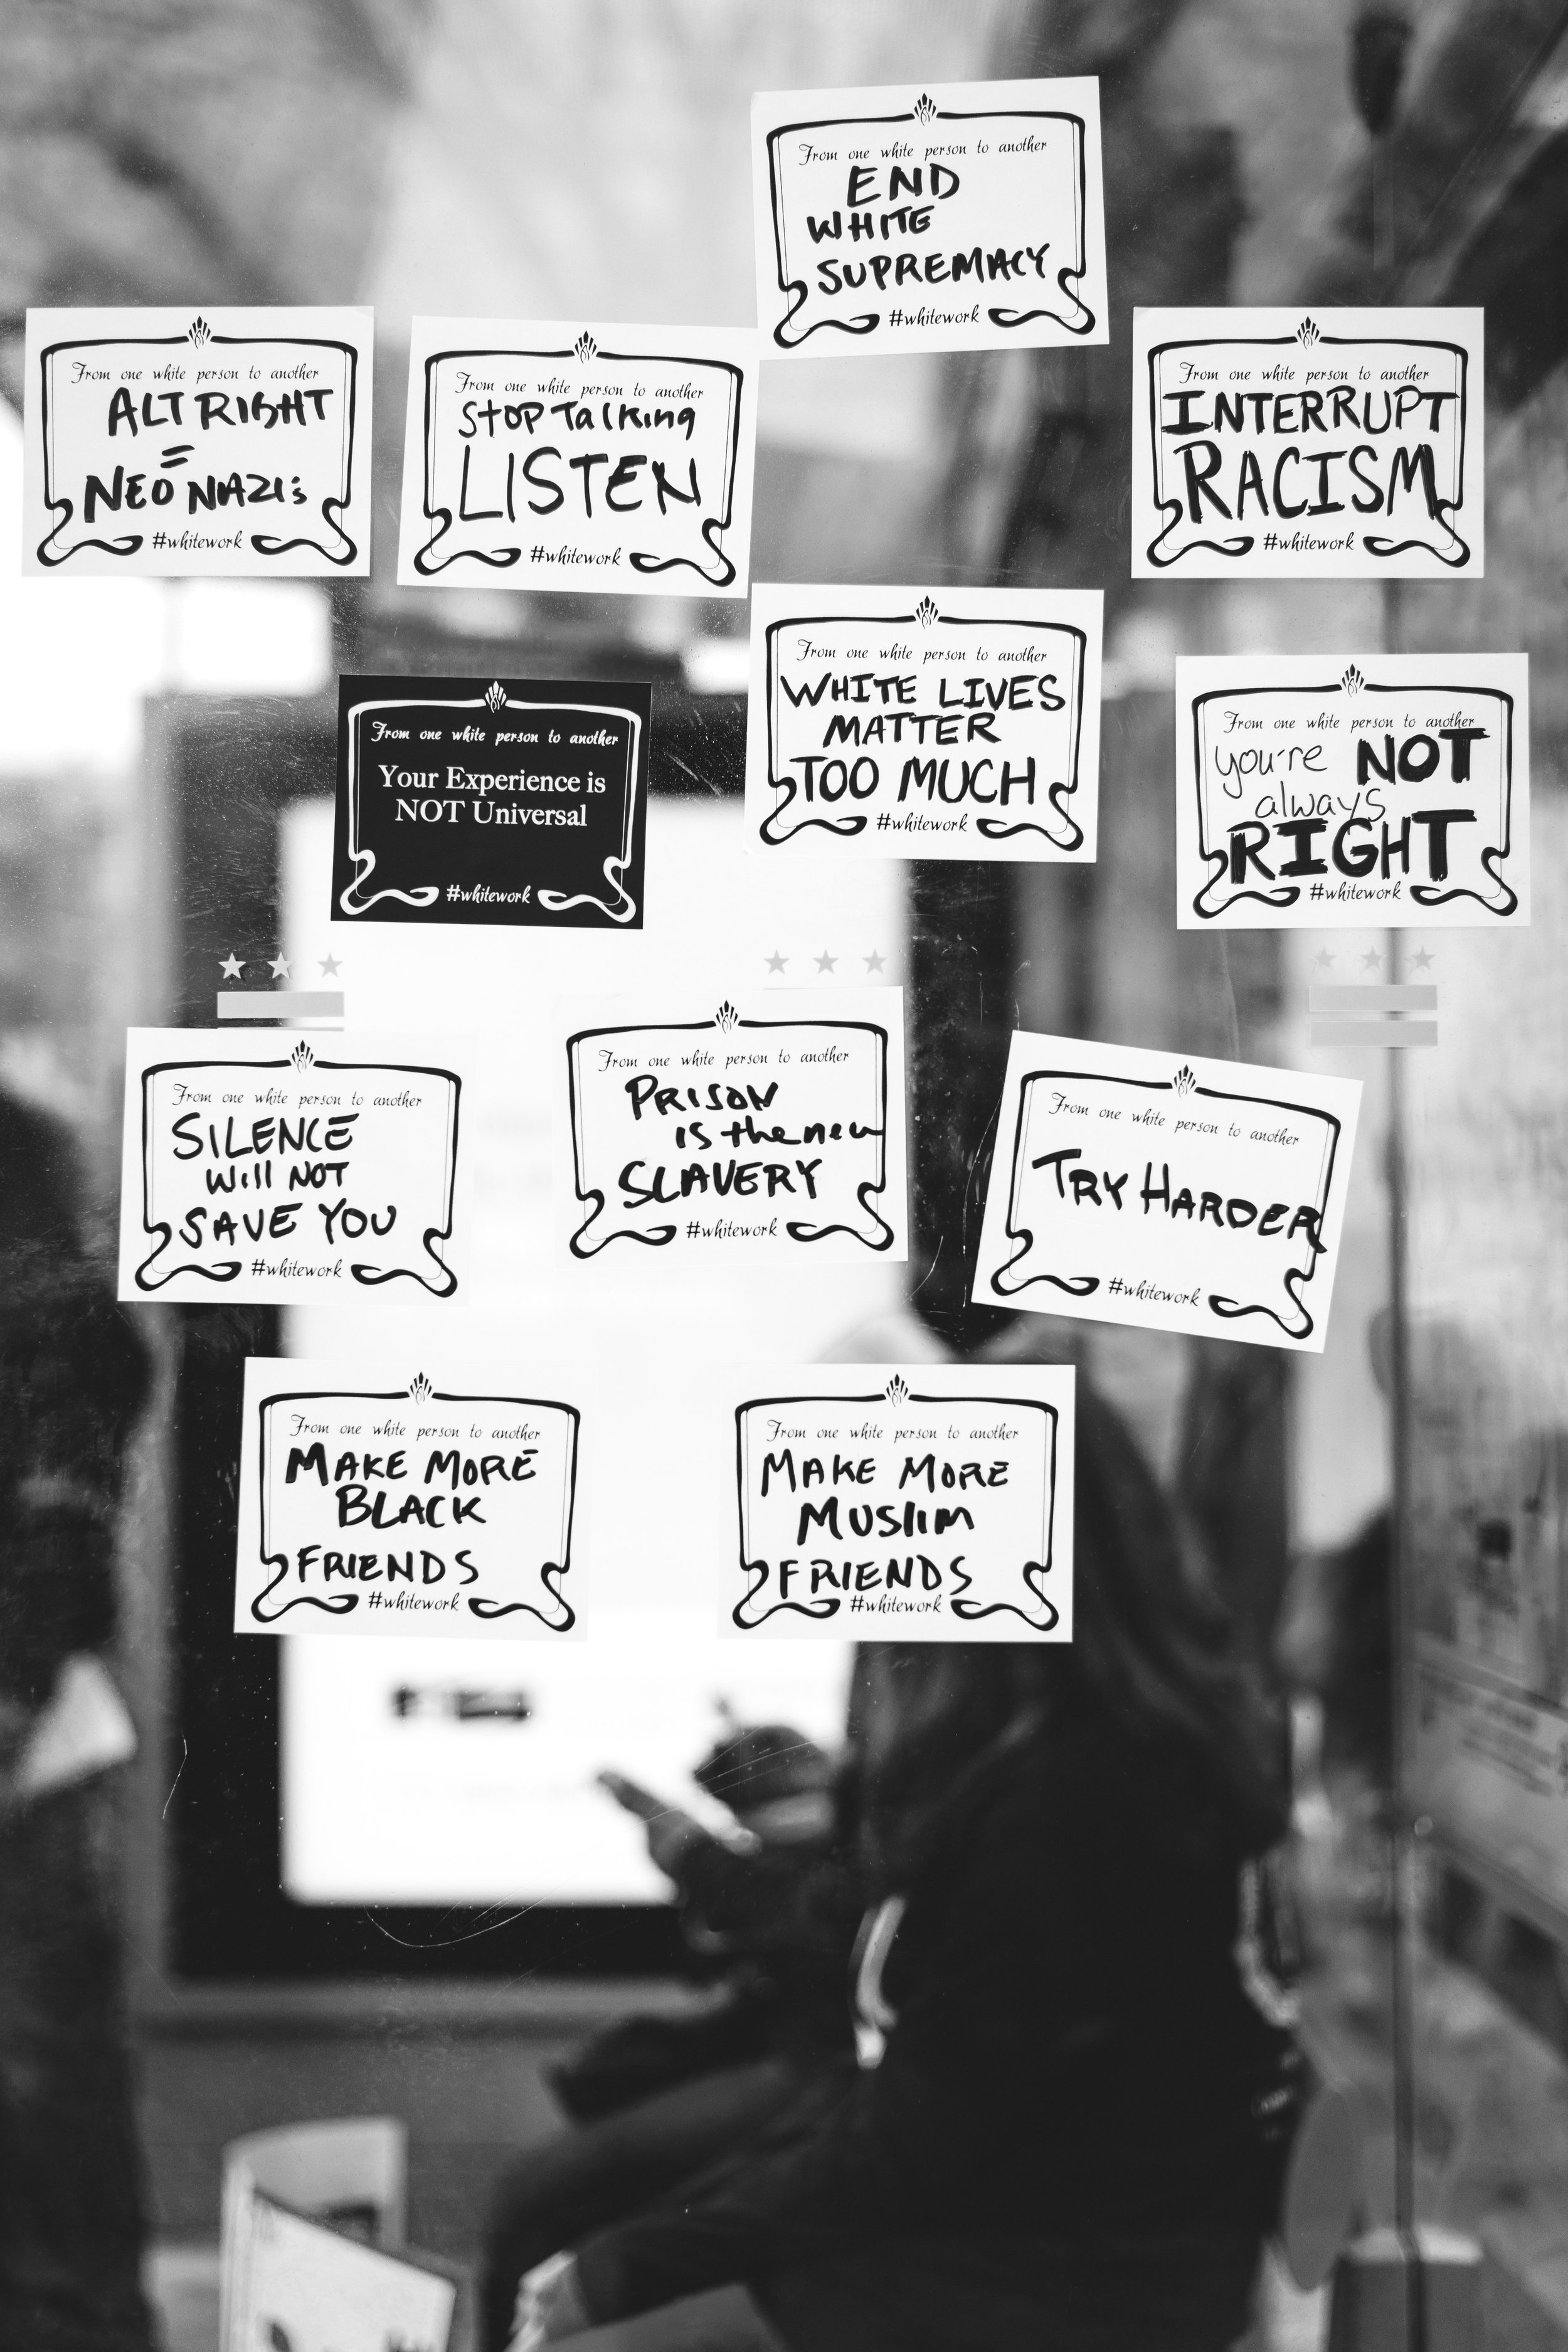 From one white person to another
END
WHITE
SUPREMACY
#whitework
From one white person to another
ALT RIGHT
=
NEO NAZIs
#whitework
From one white person to another
Stop Talking
LISTEN
#whitework
From one white person to another
INTERRUPT
RACISM
#whitework
From one white person to another
Your Experience is
NOT Universal
#whitework
From one white person to another
WHITE LIVES
MATTER
TOO MUCH
#whitework
From one white person to another
you're NOT
always
RIGHT
#whitework
From one white person to another
SILENCE
Will NOT
SAVE YOU
#whitework
From one white person to another
PRISON
is the new
SLAVERY
#whitework
From one white person to another
TRY HARDER
#whitework
From one white person to another
MAKE MORE
BLACK
FRIENDS
#whitework
From one white person to another
MAKE MORE
MUSlIM
FRIENDS
#whitework